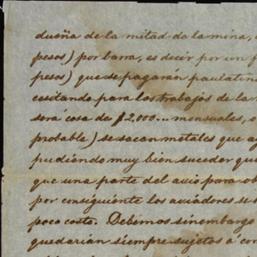 dueña de la mitad de la mina,
pesos) por barra, es decir por un p
pesos) que se pagarán paulatin
cesitando para los trabajos de la
sera cosa de $2,000... mensuales, o
probable) se sacan metales que a
pudiendo muy bien suceder que
que una parte del avio para ob
por consiguiente los aviadores se
poco costo. Debemos sin embargo
quedarian siempre sujetos á con